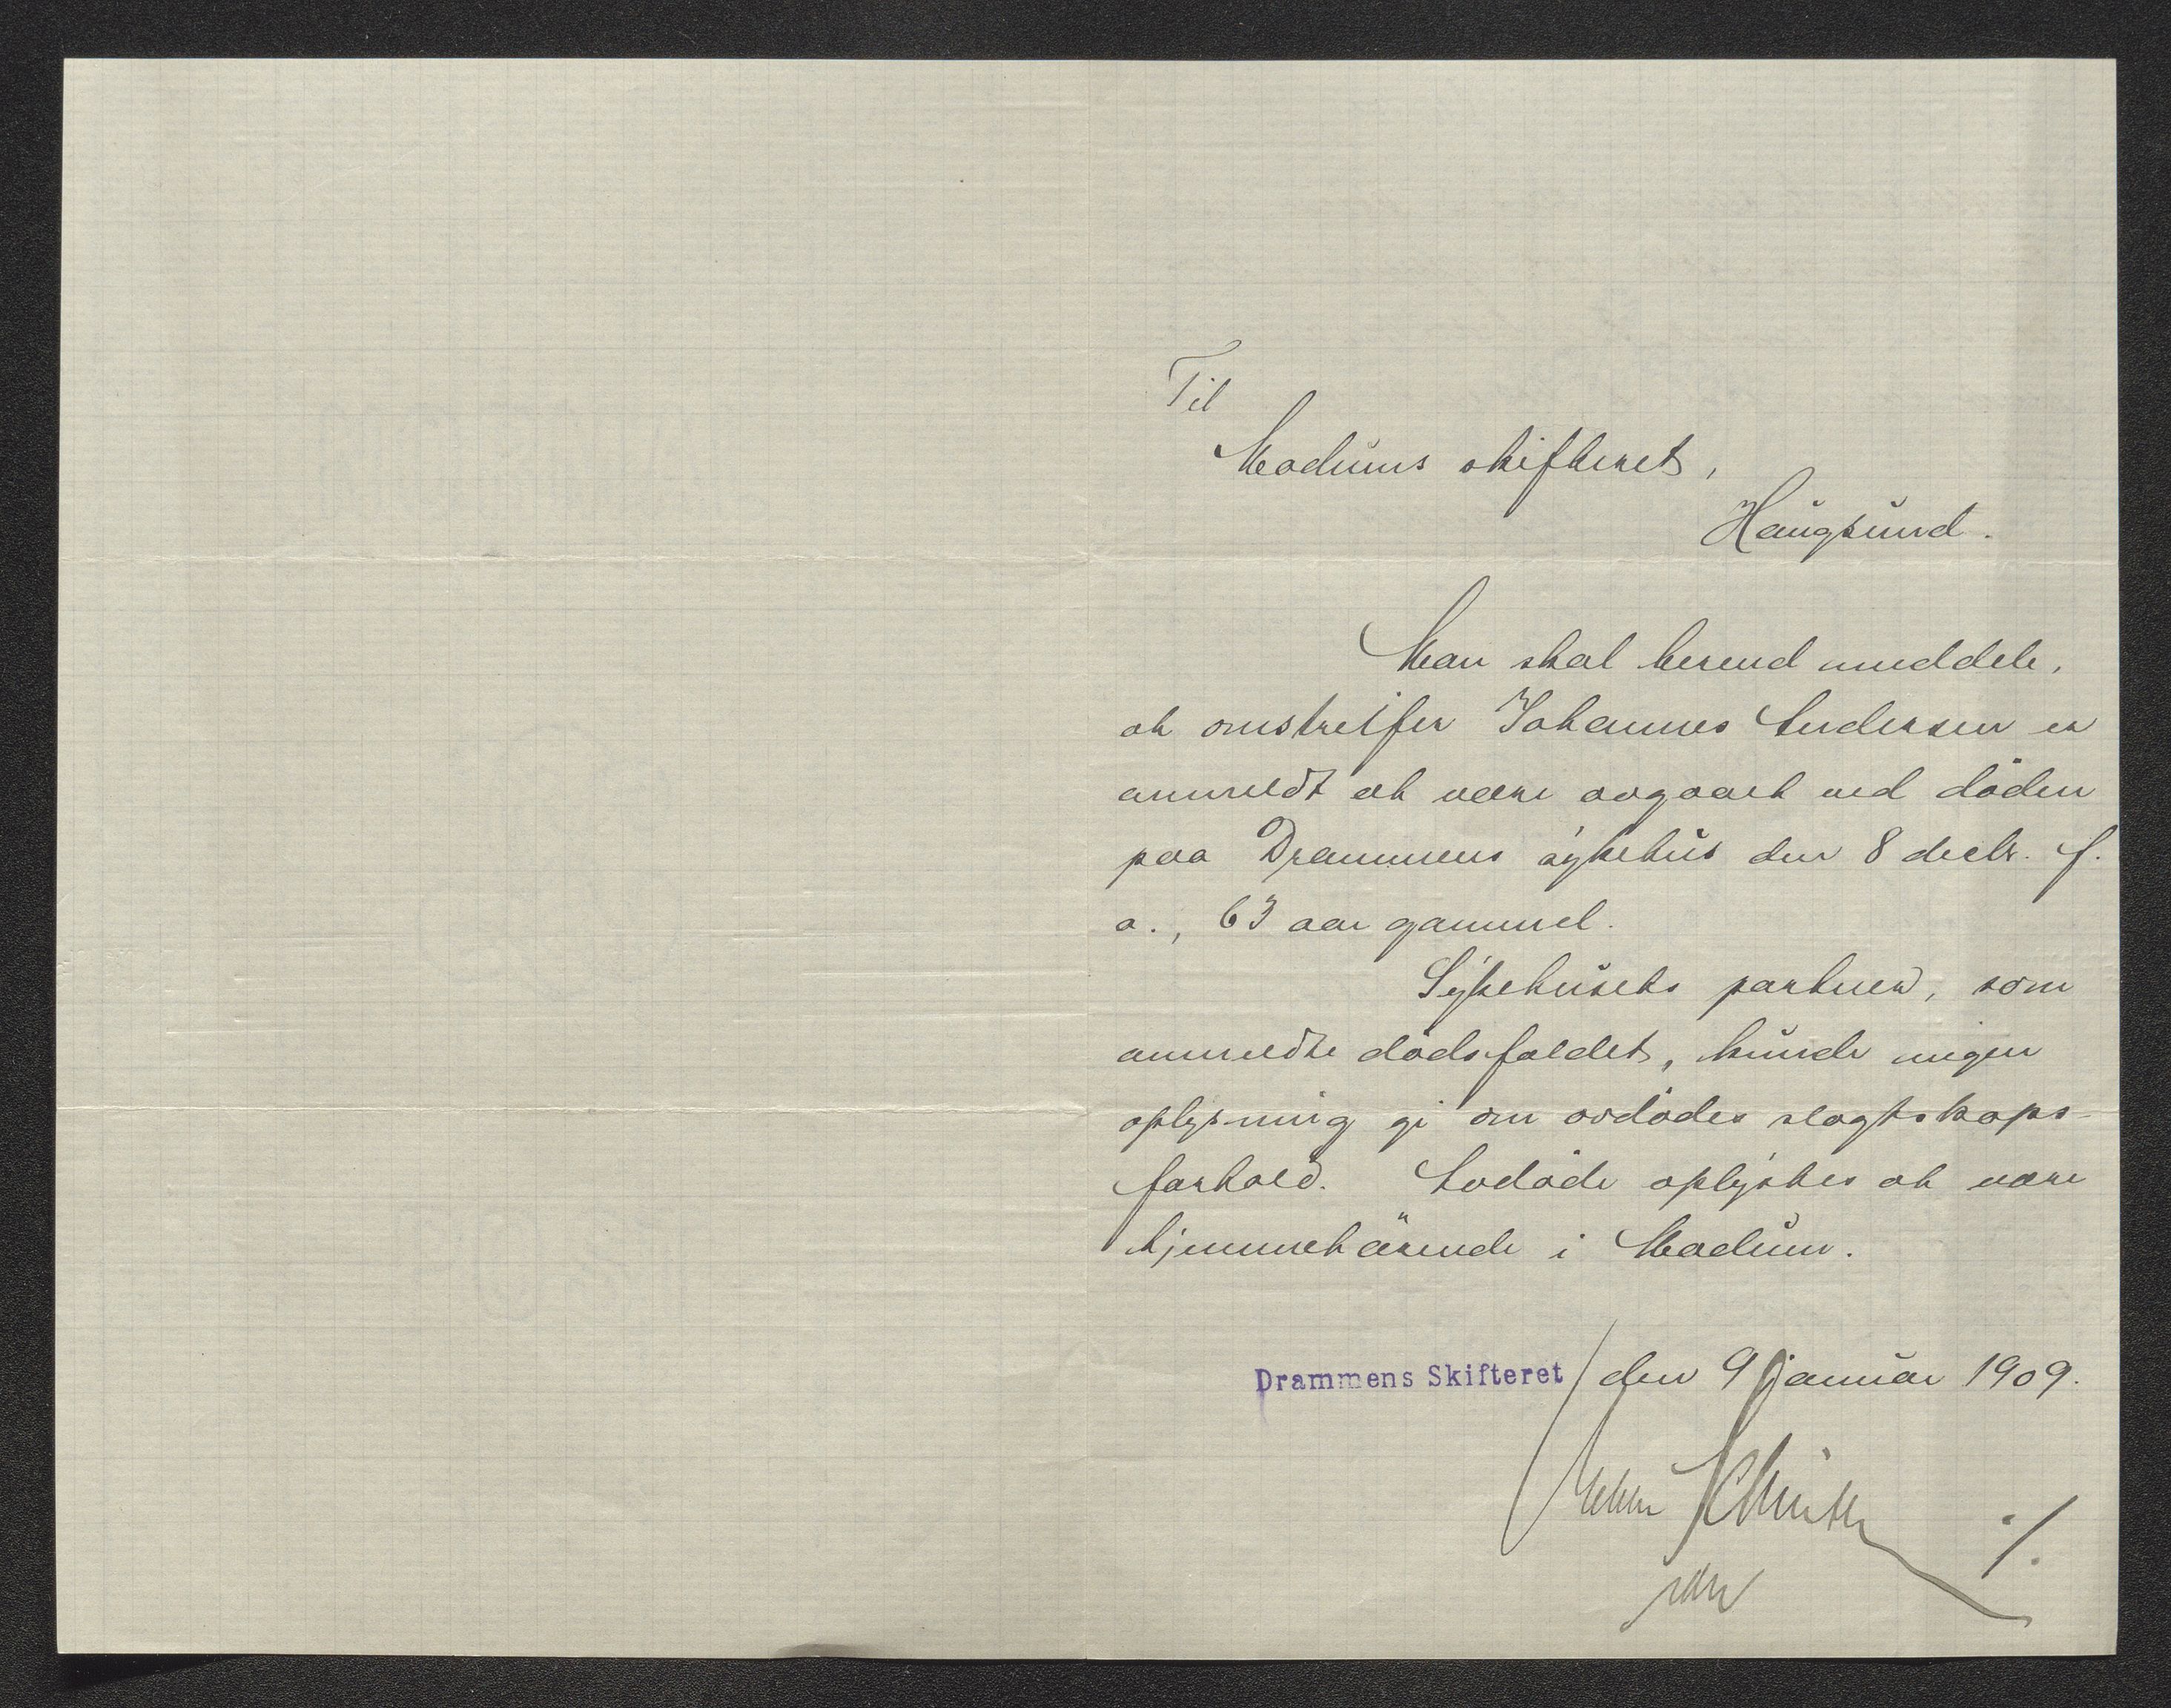 Til
Modums skifteret,
Haugsund.
Man skal herved meddele,
at omstreifer Johannes Andersen er
anmeldt at være avgaaet ved döden
paa Drammens sykehus den 8 decbr. f.
a., 63 aar gammel.
Sykehusets portner, som
anmeldte dödsfaldet, kunde ingen
oplysning gi om avdödes slegtskaps-
forhold. Avdöde oplystes at være
hjemmehörende i Modum.
Drammens Skifteret den 9 januar 1909.